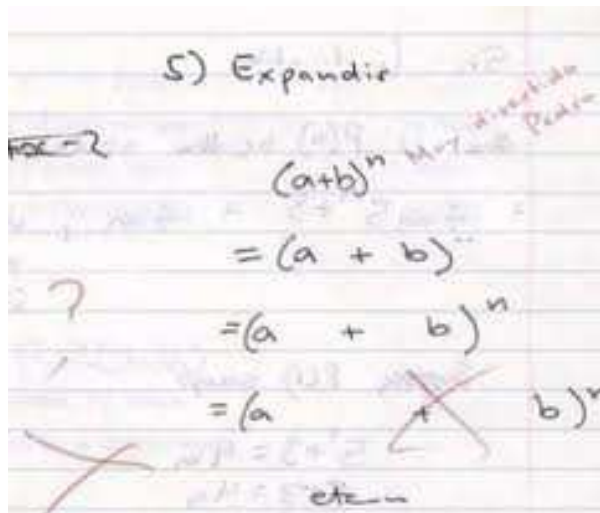 5) Expandir
Muy divertido
Pedro
(a+b)^n
= (a + b)^n
=(a + b)^n
= (a + b)^n
etc...